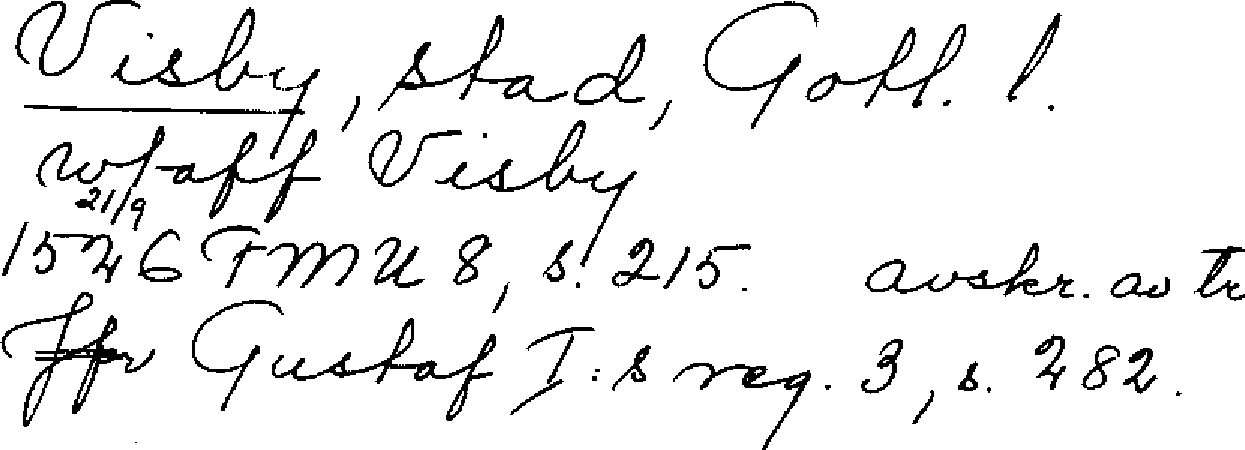 Visby, stad, Gotl. l.
wt aff Visby
21/9
1526 FMU 8, s. 215. avskr. av tr
Jfr Gustaf I:s reg. 3, s. 282.